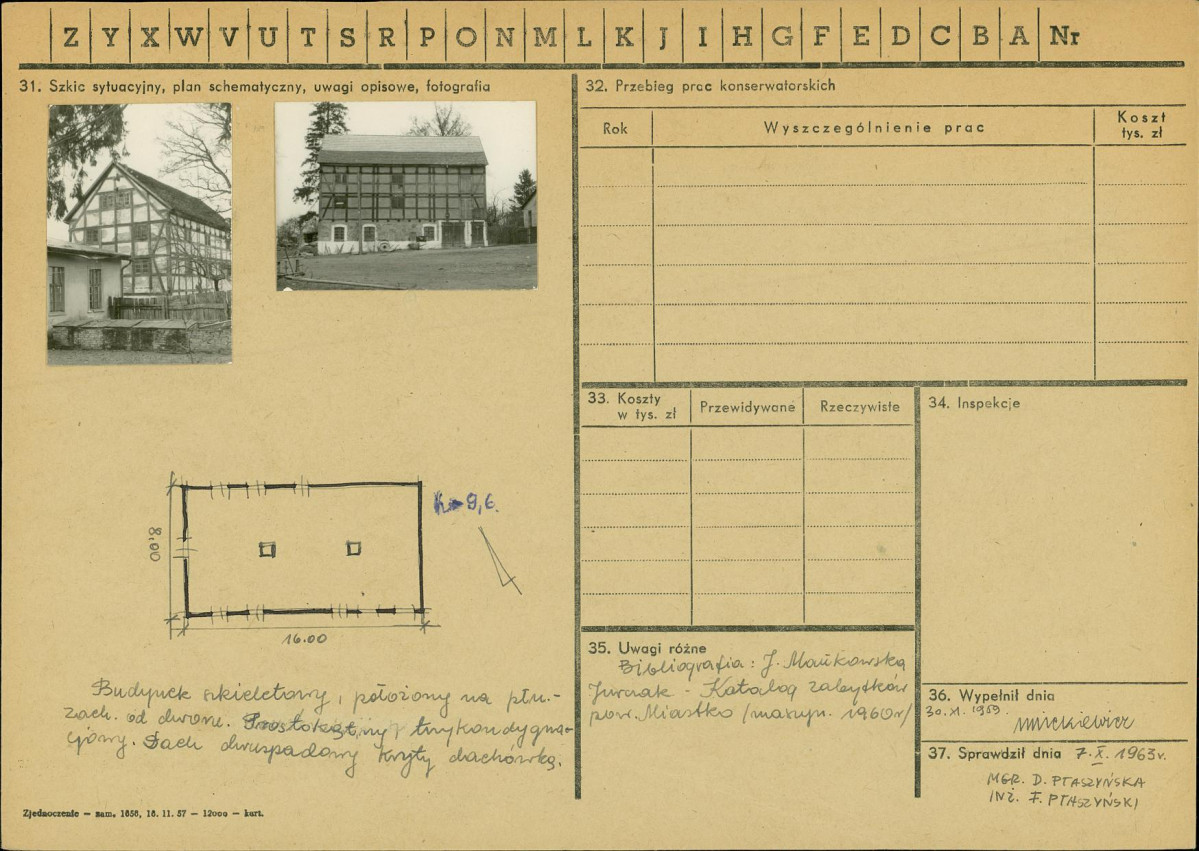 Z Y X W V U T S R P O N M L K J I H G F E D C B A Nr
31. Szkic sytuacyjny, plan schematyczny, uwagi opisowe, fotografia
8,00
16.00
h = 9,6.
Budynek szkieletowy, położony na płn.-
zach. od dworu. Prostokątny, trzykondygna-
cjowy. Dach dwuspadowy kryty dachówką.
Zjednoczenie — zam. 1656, 16. 11. 57 — 12000 — kart.
32. Przebieg prac konserwatorskich
Rok
Wyszczególnienie prac
Koszt
tys. zł
33. Koszty
w tys. zł
Przewidywane
Rzeczywiste
34. Inspekcje
35. Uwagi różne
Bibliografia: J. Mańkowska
- Katalog zabytków
pow. Miastko /maszyn. 1960r/
36. Wypełnił dnia
30.X1.1959
Mickiewicz
37. Sprawdził dnia 7.X.1963r.
MGR. D. PTASZYŃSKA
INŻ. F. PTASZYŃSKI